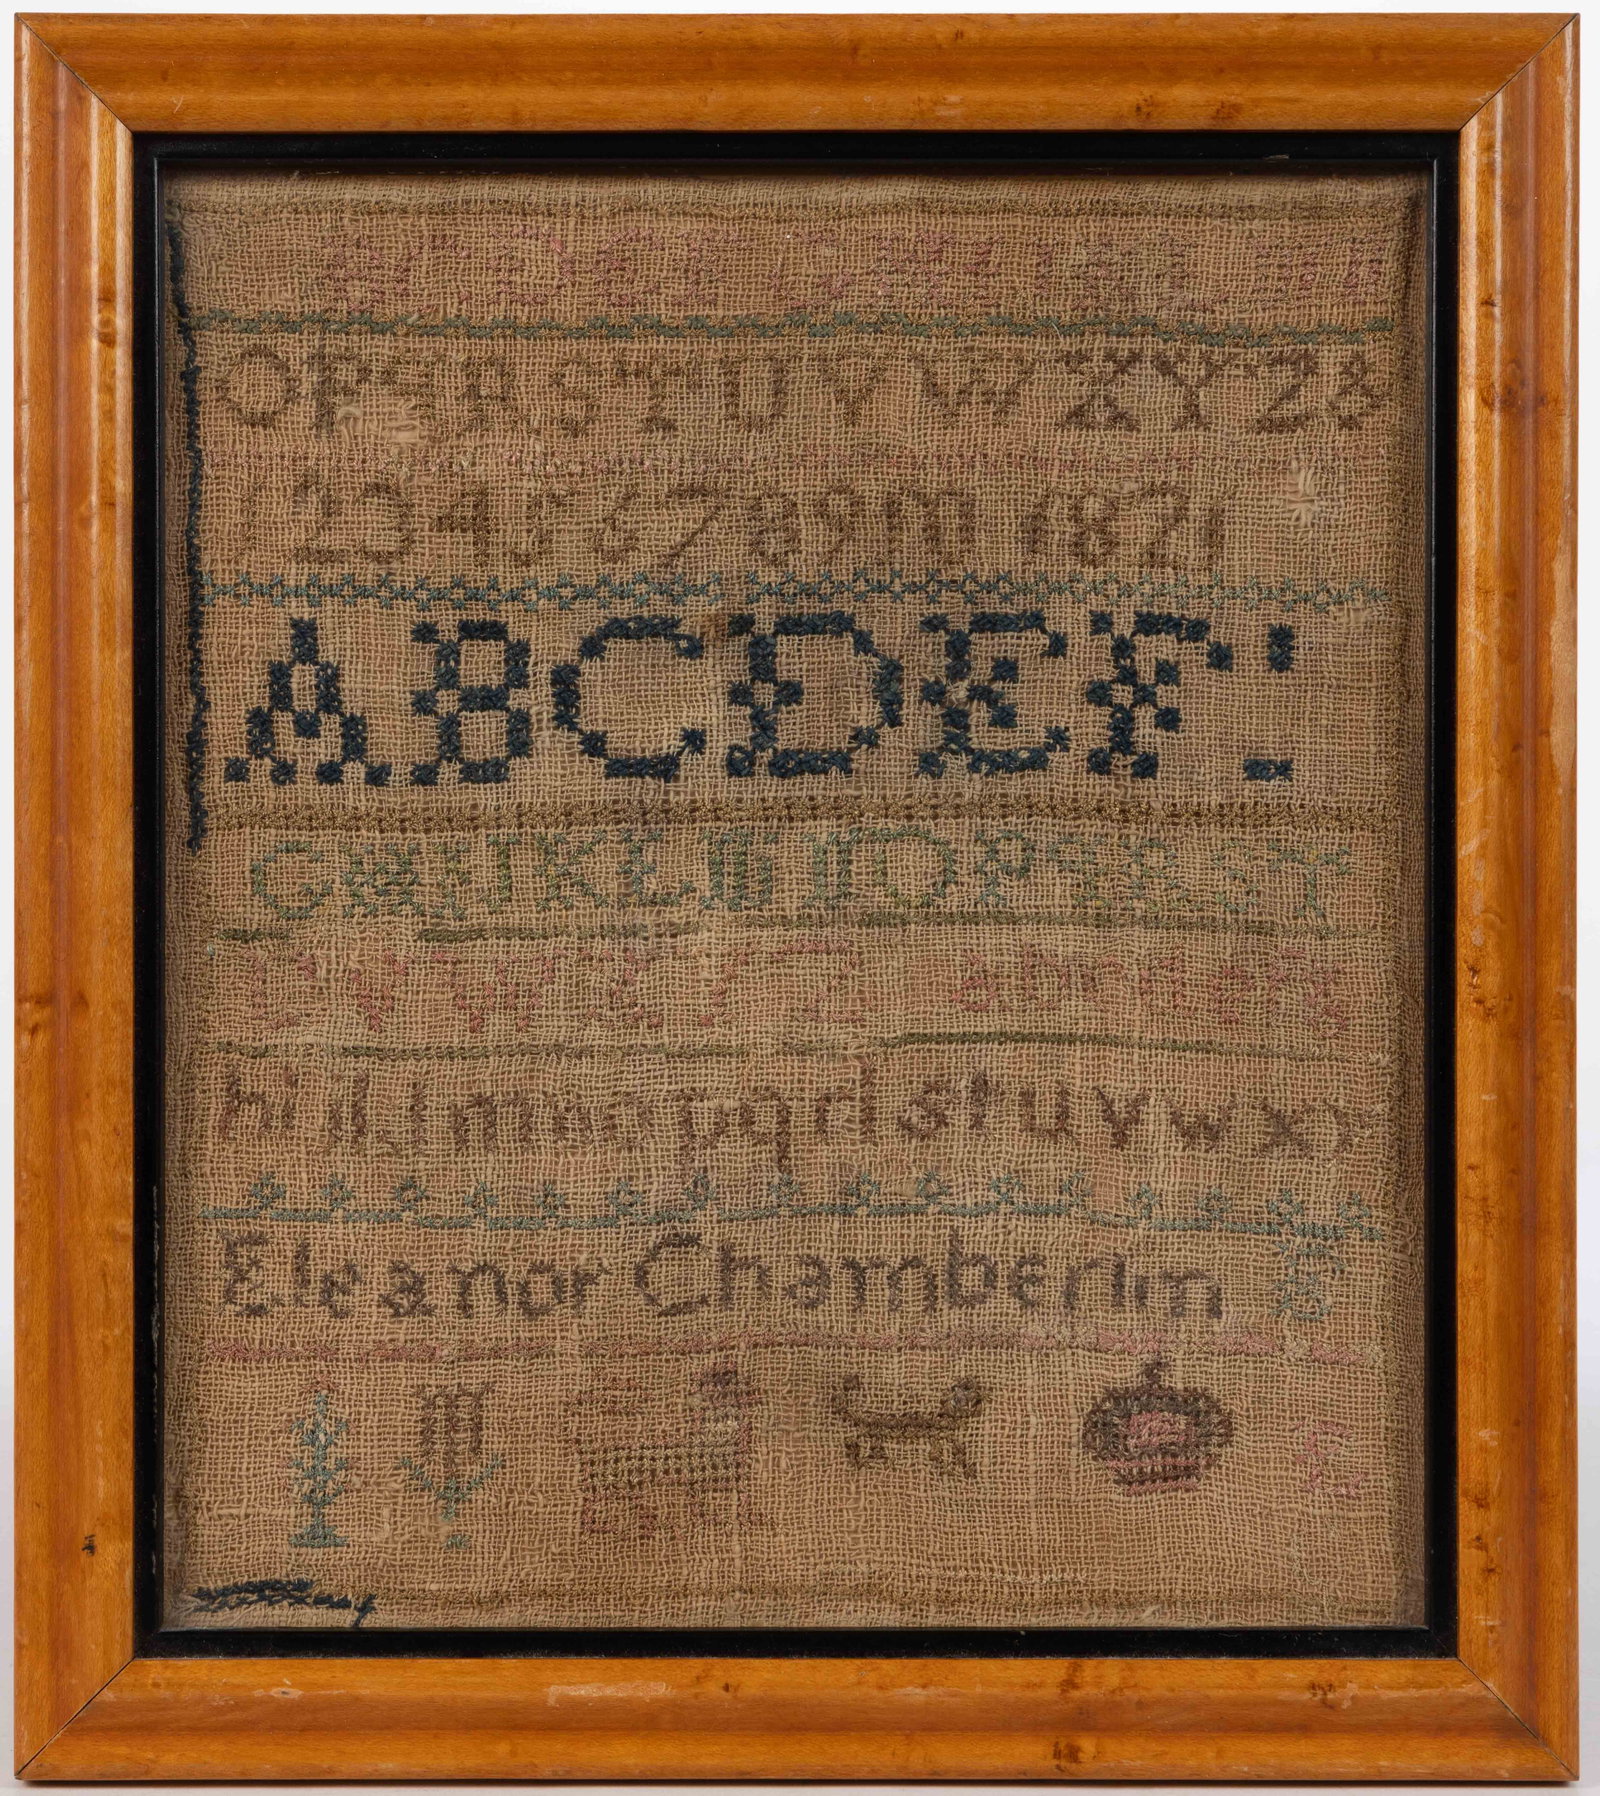 A B C D E F G H I J K L M N
O P Q R S T U V W X Y Z &
1 2 3 4 5 6 7 8 9 10 1821
A B C D E F
G H I J K L M N O P Q R S T
U V W X Y Z a b c d e f g
h i j k l m n o p q r s t u v w x y
Eleanor Chamberlin
E